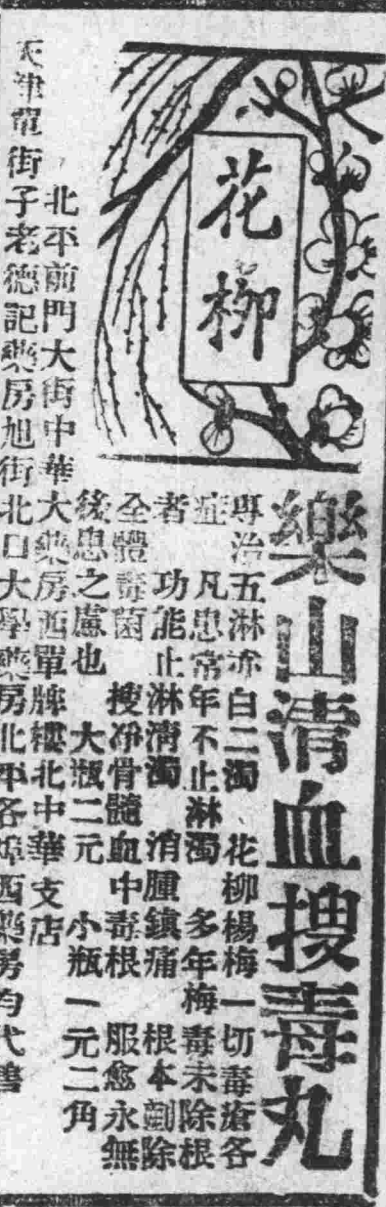 花柳
樂山清血搜毒丸
專治五淋赤白二濁 花柳楊梅一切毒瘡各
症 凡患常年不止淋濁 多年梅毒未除根
者 功能止淋清濁 消腫鎮痛 根本剷除
全體毒菌 搜净骨髓血中毒根 服愈永無
後患之慮也 大瓶二元 小瓶一元二角
北平前門大街中華大藥房西單牌樓北中華支店
天津單街子老德記藥房旭街北口大學藥房北平各埠西藥房均代售